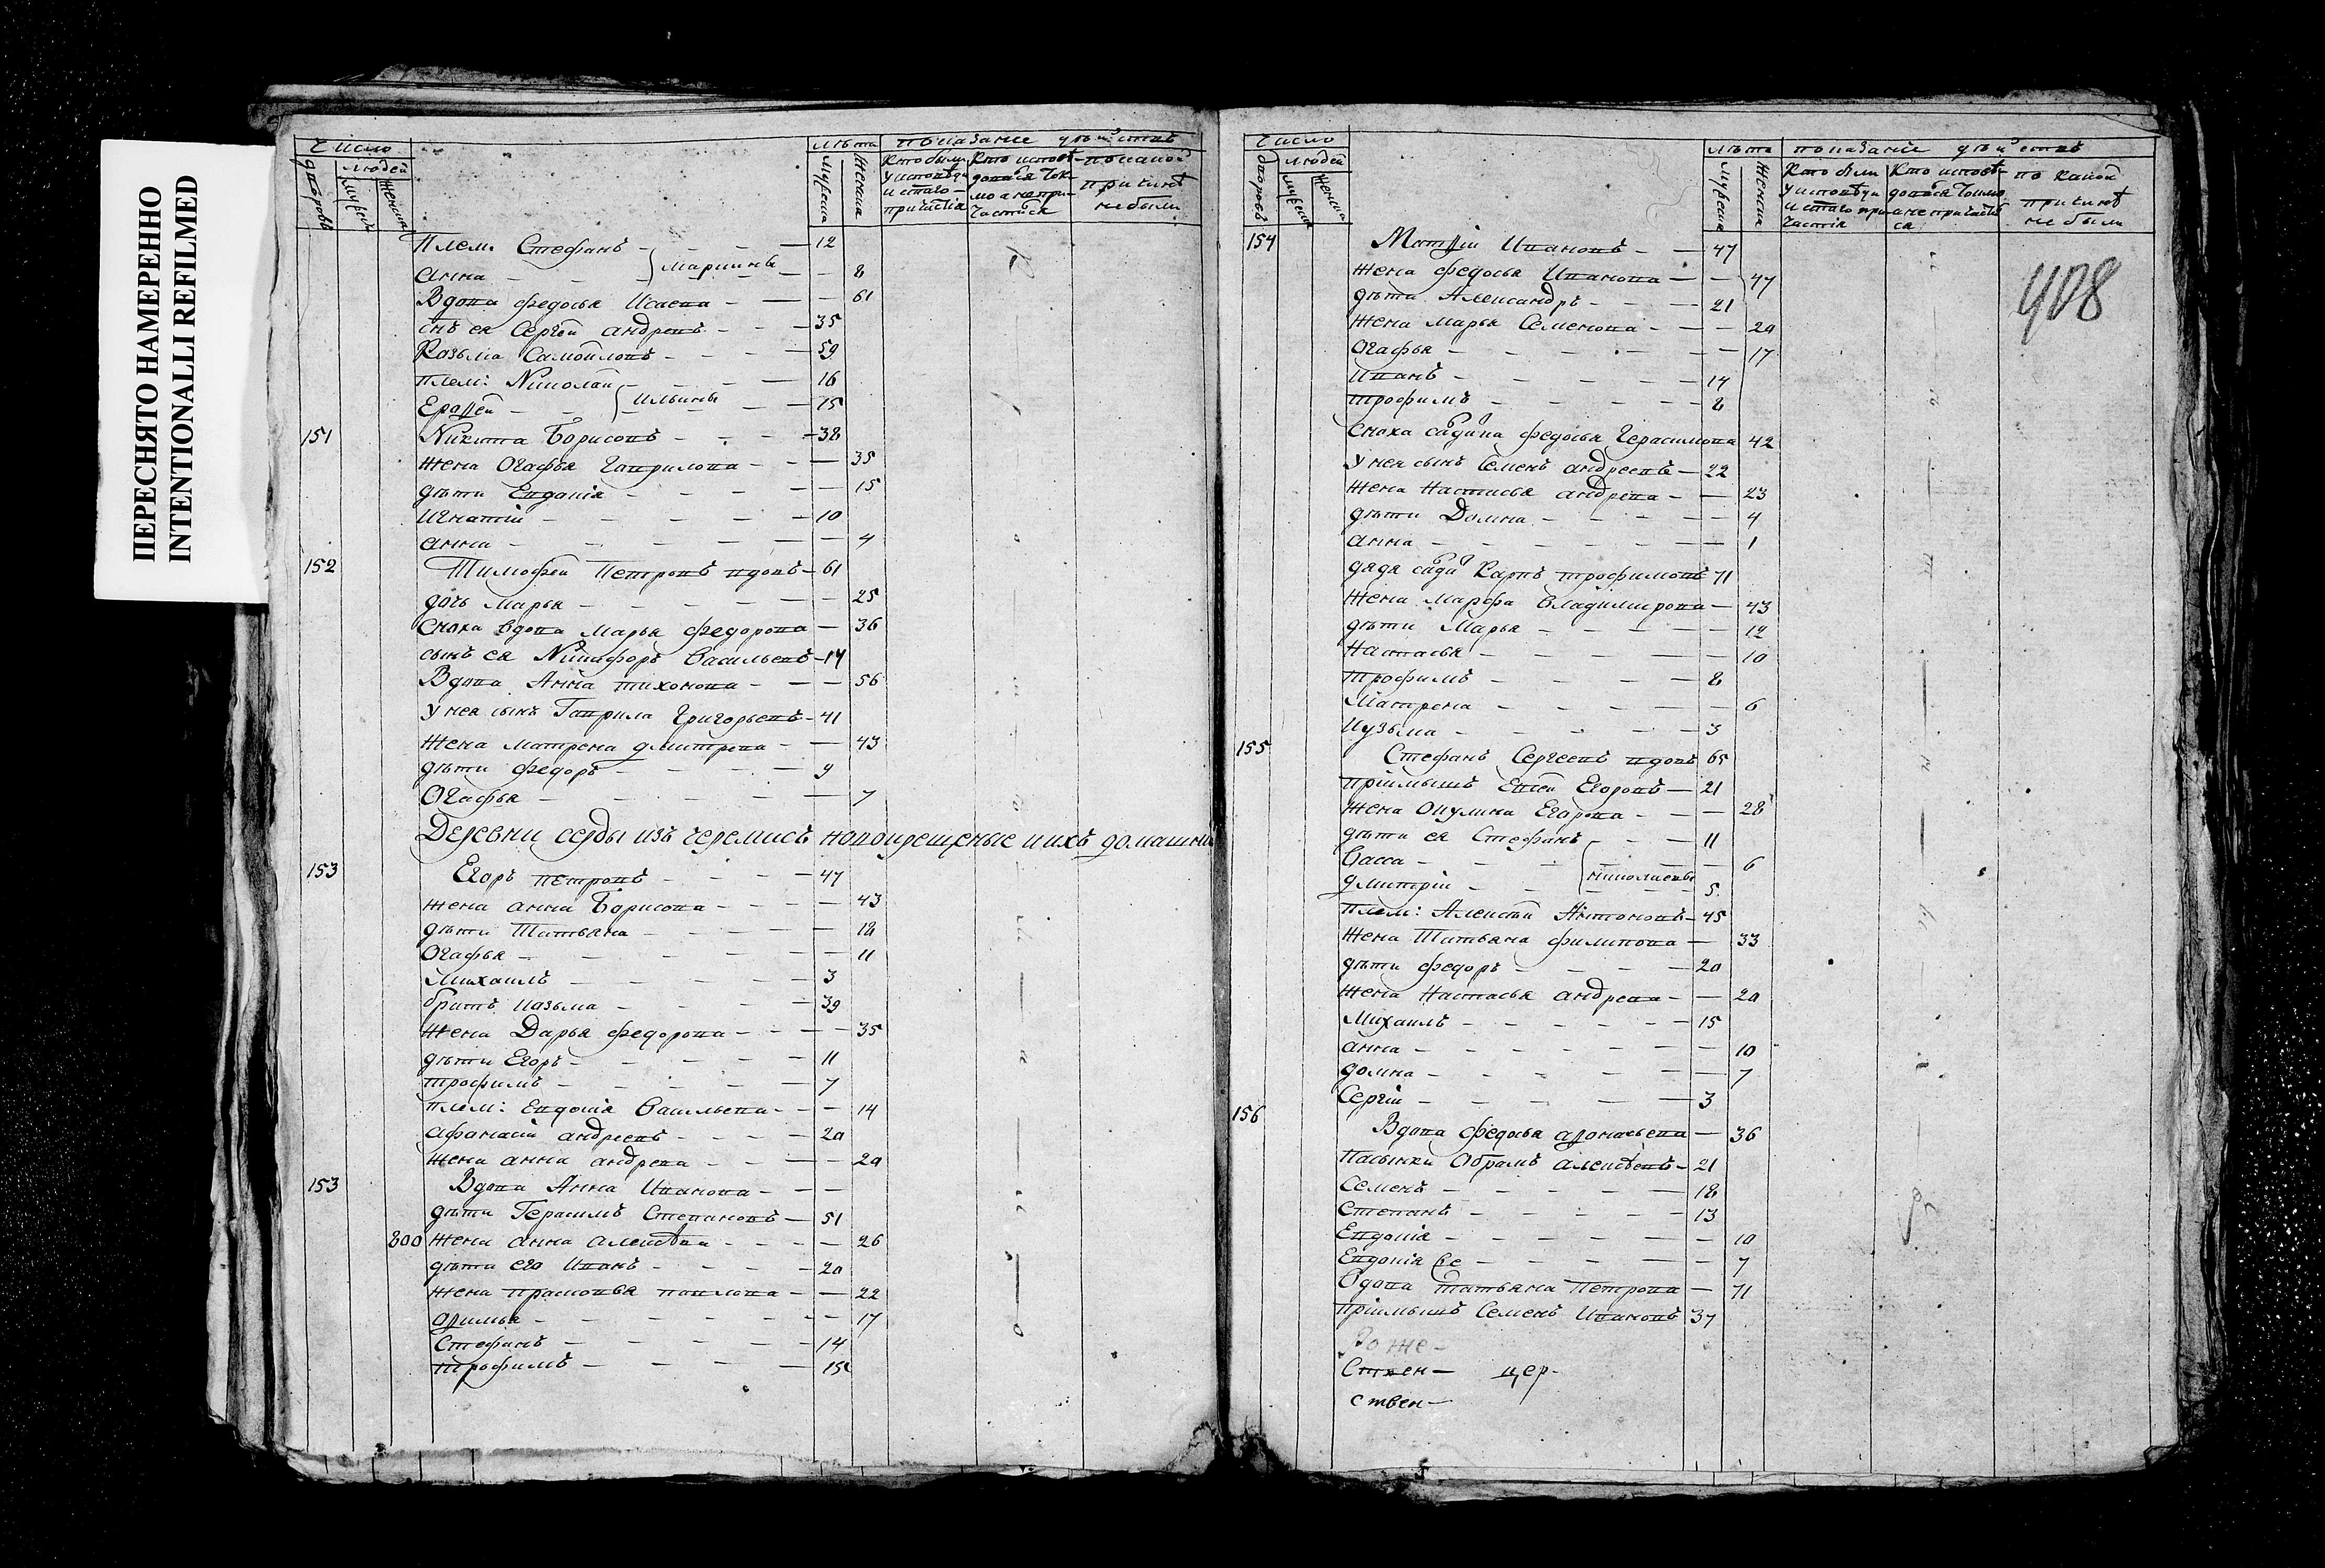 ПЕРЕСНЯТО НАМЕРЕННО
INTENTIONALLI REFILMED
Число
дворовъ
людей
мужска
женска
лѣта
мужеска
женска
показанїе дѣйствъ
Кто были у исповѣди и ст҃аго причастїя
Кто исповѣдовался ток-мо а непри-частился
по какой причинѣ не были
Плем: Стефанъ 12
Анна 8
Маркины
Вдова Федосья Исаева 61
с҃нъ ея Сергѣй Андревъ 35
Козьма Самойловъ 59
плем: Николай 16
Ерофей 15
Ильины
151 Никита Борисовъ 38
жена Огафья Гаврилова 35
дѣти Евдокїя 15
Игнатїй 10
Анна 4
152 Тимофей Петровъ вдовъ 61
дочь Марья 25
сноха вдова Марья Федорова 36
сынъ ея Никифоръ Васильевъ 14
Вдова Анна Тихонова 56
у нея сынъ Гаврила Григорьевъ 41
жена Матрена Дмитрева 43
дѣти Федоръ 9
Огафья 7
Деревни серды изъ черемисъ новокрещеные и ихъ домашнїи
153 Егоръ Петровъ 47
жена Анна Борисова 43
дѣти Татьяна 18
Огафья 11
Михаилъ 3
братъ Козьма 39
жена Дарья Федорова 35
дѣти Егоръ 11
Трофимъ 7
плем: Евдокїя Васильева 14
Афанасїй Андреевъ 20
жена Анна Андрева 20
153 Вдова Анна Иванова
дѣти Герасимъ Степановъ 51
800 жена Анна Алексѣва 26
дѣти его Иванъ 20
жена Прасковья Павлова 22
17
Стефанъ 14
Трофимъ 15
Число
дворовъ
людей
мужска
женска
лѣта
мужеска
женска
показанїе дѣйствъ
Кто были у исповѣди и ст҃аго причастїя
Кто исповѣдовался токмо а не причастился
по какой причинѣ не были
408
154 Матфїй Ивановъ 47
жена Федосья Иванова 47
дѣти Александръ 21
жена Марья Семенова 20
Огафья 17
Иванъ 14
Трофимъ 8
Сноха Федосья Герасимова 42
у нея сынъ Семенъ Андреевъ 22
жена Настасья Андрева 23
дѣти Домна 4
Анна 1
дядя Карпъ Трофимовъ 71
жена Марфа Владимирова 43
дѣти Марья 12
Настасья 10
Трофимъ 8
Матрена 6
Кузьма 3
155 Стефанъ Сергеевъ вдовъ 65
прїимышъ Егоровъ 21
жена Окулина Егорова 28
дѣти ея Стефанъ 11
Васса 6
Дмитрїй 5
Николаевы
плем: Алексѣй Антоновъ 45
жена Татьяна Филипова 33
дѣти Федоръ 20
жена Настасья Андрева 20
Михаилъ 15
Анна 10
Домна 7
Сергїй 3
156 Вдова Федосья Афонасьева 36
Пасынки Обрамъ Алексѣевъ 21
Семенъ 18
Степанъ 13
Евдокїя 10
Евдокїя 7
Вдова Татьяна Петрова 71
прїимышъ Семенъ Ивановъ 37
Роже-
цер-
ствен-